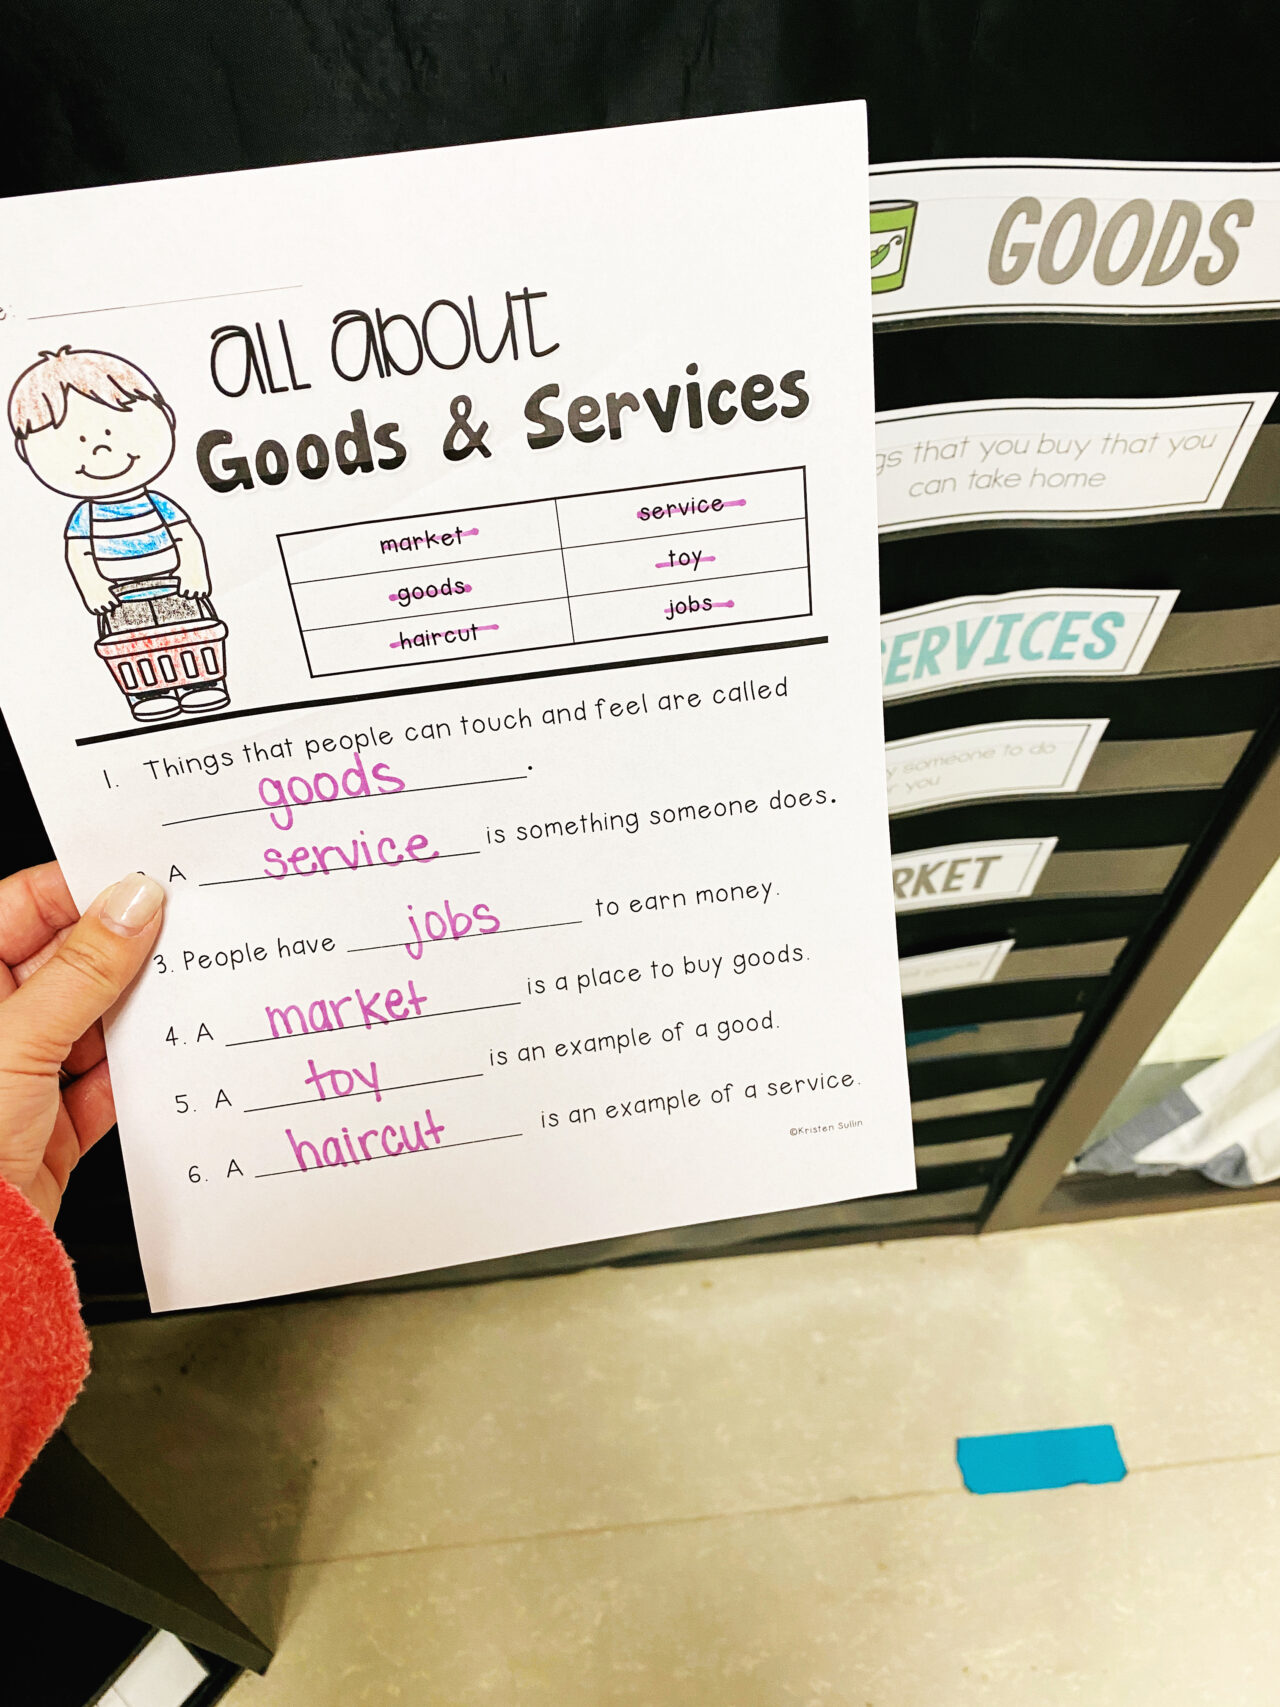 all about
Goods & Services
market
service
goods
toy
haircut
jobs
1. Things that people can touch and feel are called
goods.
A service is something someone does.
3. People have jobs to earn money.
4. A market is a place to buy goods.
5. A toy is an example of a good.
6. A haircut is an example of a service.
©Kristen Sullin
GOODS
that you buy that you
can take home
SERVICES
someone to do
you